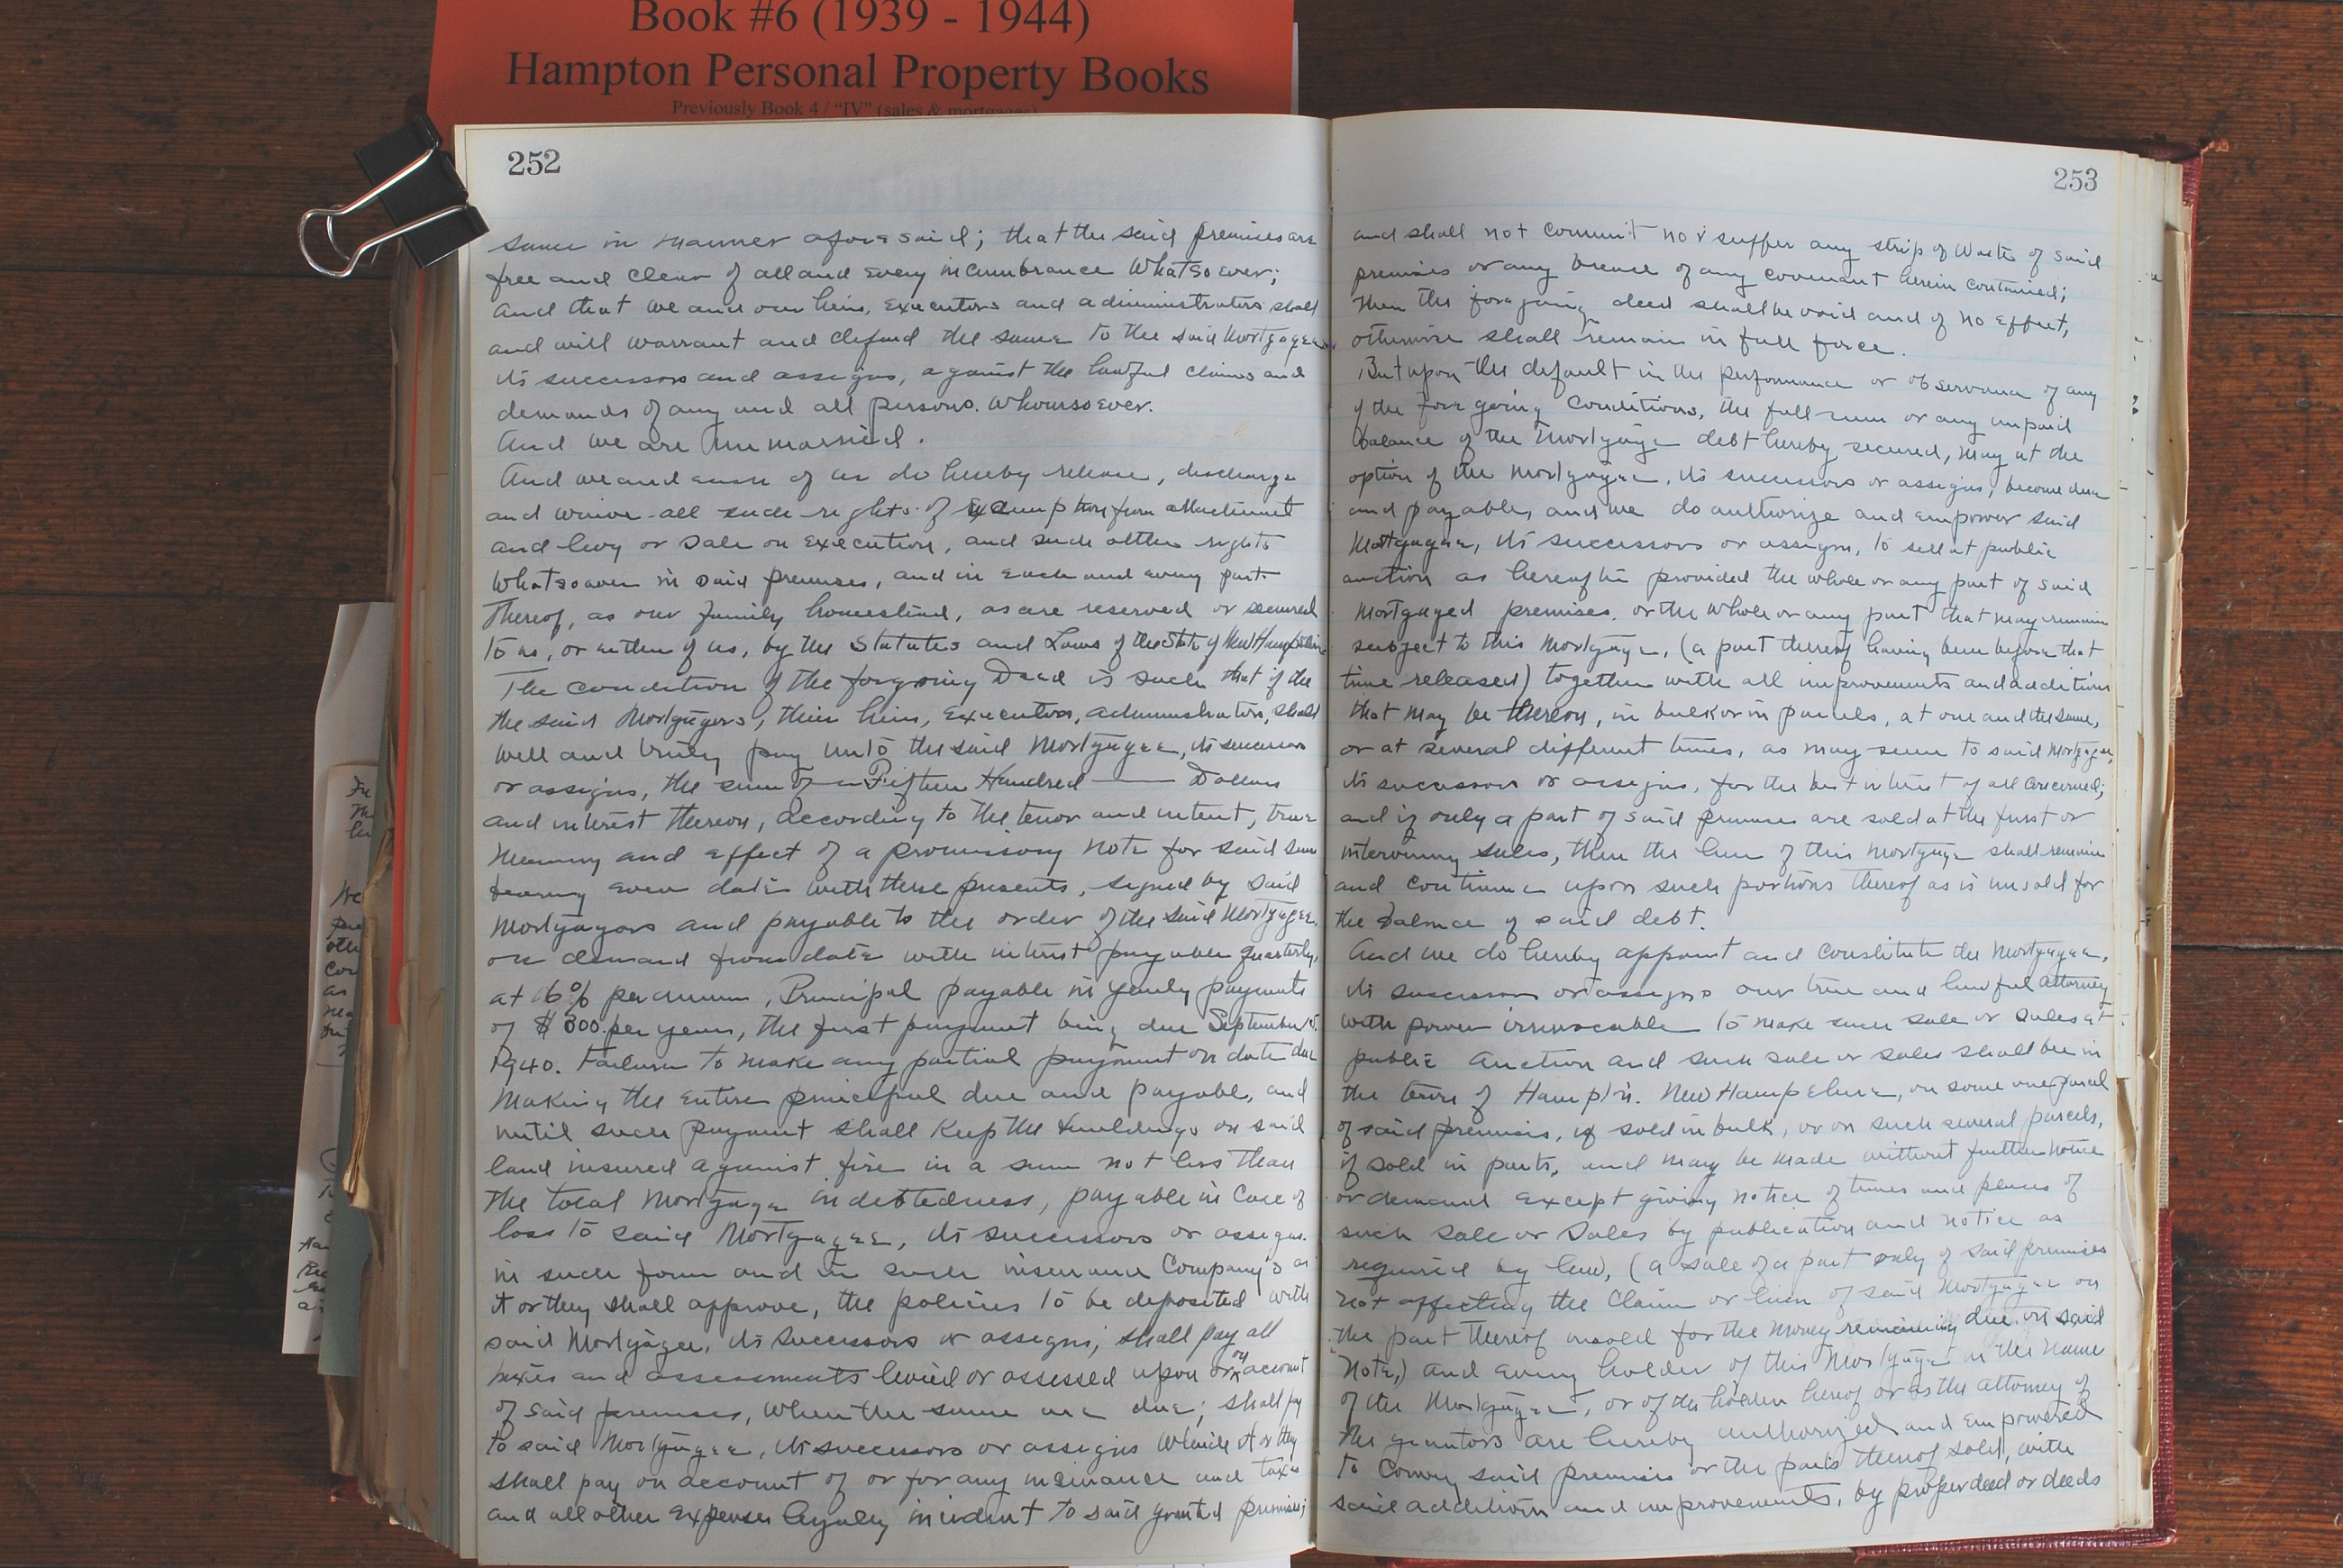 Book #6 (1939 - 1944)
Hampton Personal Property Books
Previously Book 4 / “IV” (sales & mortgages)
252
same in manner aforesaid; that the said premises are
free and clear of all and every incumbrance Whatsoever;
And that we and our heirs, executors and administrators shall
and will warrant and defend the same to the said Mortgagee
its successors and assigns, against the lawful claims and
demands of any and all persons. Whomsoever.
And we are unmarried.
And we and each of us do hereby release, discharge
and waive all such rights of exemption from attachment
and levy or sale on execution, and such other rights
Whatsoever in said premises, and in each and every part
Thereof, as our family homestead, as are reserved or secured
to us, or either of us, by the Statutes and Laws of the State of New Hampshire
The condition of the forgoing Deed is such that if the
the said Mortgagors, their heirs, executors, administrators, shall
well and truly pay unto the said Mortgagee, its successors
or assigns, the sum of — Fifteen Hundred — Dollars
and interest thereon, according to the tenor and intent, true
meaning and effect of a promissory note for said sum
bearing even date with these presents, signed by said
Mortgagors and payable to the order of the said Mortgagee.
on demand from date with interest payable quarterly,
at 6% per annum, Principal payable in yearly payments
of $300. per year, the first payment being due September
1940. Failure to make any partial payment on date due
Making the entire principal due and payable, and
until such payment shall Keep the buildings on said
land insured against fire in a sum not less than
the total Mortgage indebtedness, payable in Case of
loss to said Mortgagee, its successors or assigns.
in such form and in such insurance Company's as
it or they shall approve, the policies to be deposited with
said Mortgagee, its successors or assigns; shall pay all
taxes and assessments levied or assessed upon or on account
of said premises, When the same are due; shall pay
to said Mortgagee, its successors or assigns Which it or they
shall pay on account of or for any insurance and taxes
and all other expenses legally incident to said granted premises;
253
and shall not commit nor suffer any strip of Waste of said
premises or any breach of any covenant herein contained;
then the foregoing deed shall be void and of no effect,
otherwise shall remain in full force.
But upon the default in the performance or observance of any
of the foregoing Conditions, the full sum or any unpaid
balance of the Mortgage debt hereby secured, may at the
option of the Mortgagee, its successors or assigns, become due
and payable, and we do authorize and empower said
Mortgagee, its successors or assigns, to sell at public
auction as hereafter provided the whole or any part of said
Mortgaged premises, or the Whole or any part that may remain
subject to this Mortgage, (a part thereof having been before that
time released) together with all improvements and additions
that may be thereon, in bulk or in parcels, at one and the same,
or at several different times, as may seem to said Mortgagee,
its successors or assigns, for the best interest of all concerned;
and if only a part of said premises are sold at the first or
intervening sales, then the lien of this Mortgage shall remain
and continue upon such portions thereof as is unsold for
the balance of said debt.
And we do hereby appoint and constitute the Mortgagee,
its successors or assigns our true and lawful attorney
with power irrevocable to make such sale or sales at
public Auction and such sale or sales shall be in
the town of Hampton. New Hampshire, on some one parcel
of said premises, if sold in bulk, or on such several parcels,
if sold in parts, and may be made without further notice
or demand except giving notice of times and places of
such sale or Sales by publication and notice as
required by law, (a sale of a part only of said premises
not affecting the Claim or lien of said Mortgagee on
the part thereof unsold for the money remaining due on said
Note,) and every holder of this Mortgage in the name
of the Mortgagee, or of the holder hereof or as the attorney of
the grantors are hereby authorized and empowered
to Convey said premises or the parts thereof sold, with
said additions and improvements, by proper deed or deeds